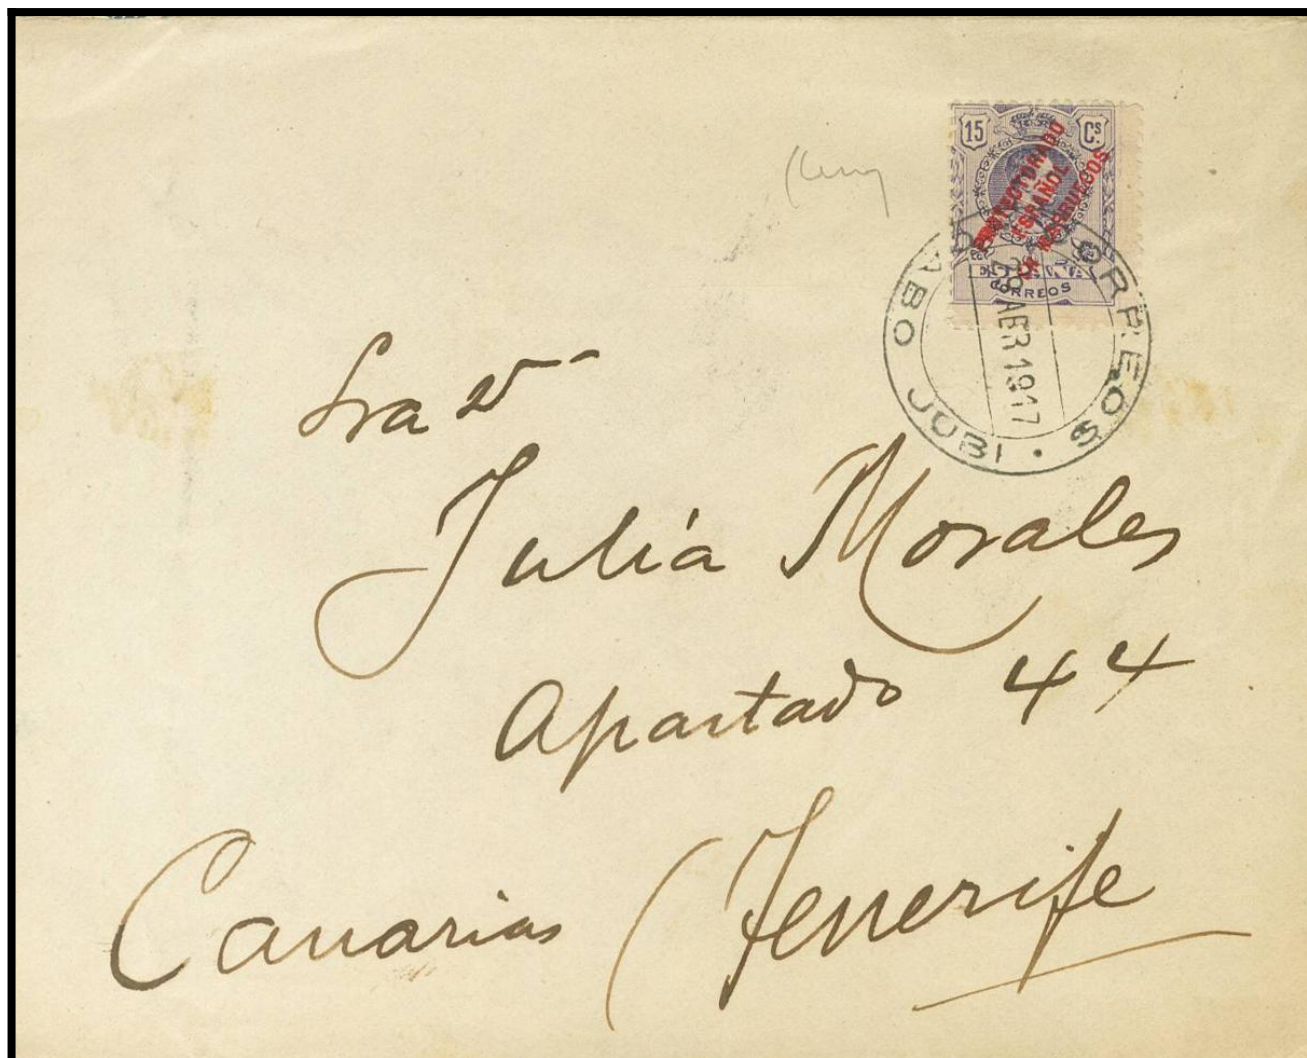 15 Cs
PROTECTORADO
ESPAÑOL
EN MARRUECOS
ESPAÑA
CORREOS
CORREOS
CABO JUBI
28 ABR 1917
Sra Dª
Julia Morales
Apartado 44
Canarias (Tenerife